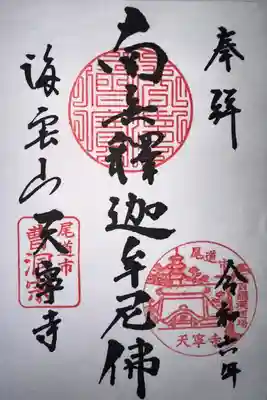 奉拜
令和六年
南無釋迦牟尼佛
海雲山天寧寺
尾道市
曹洞宗
尾道市
天寧寺